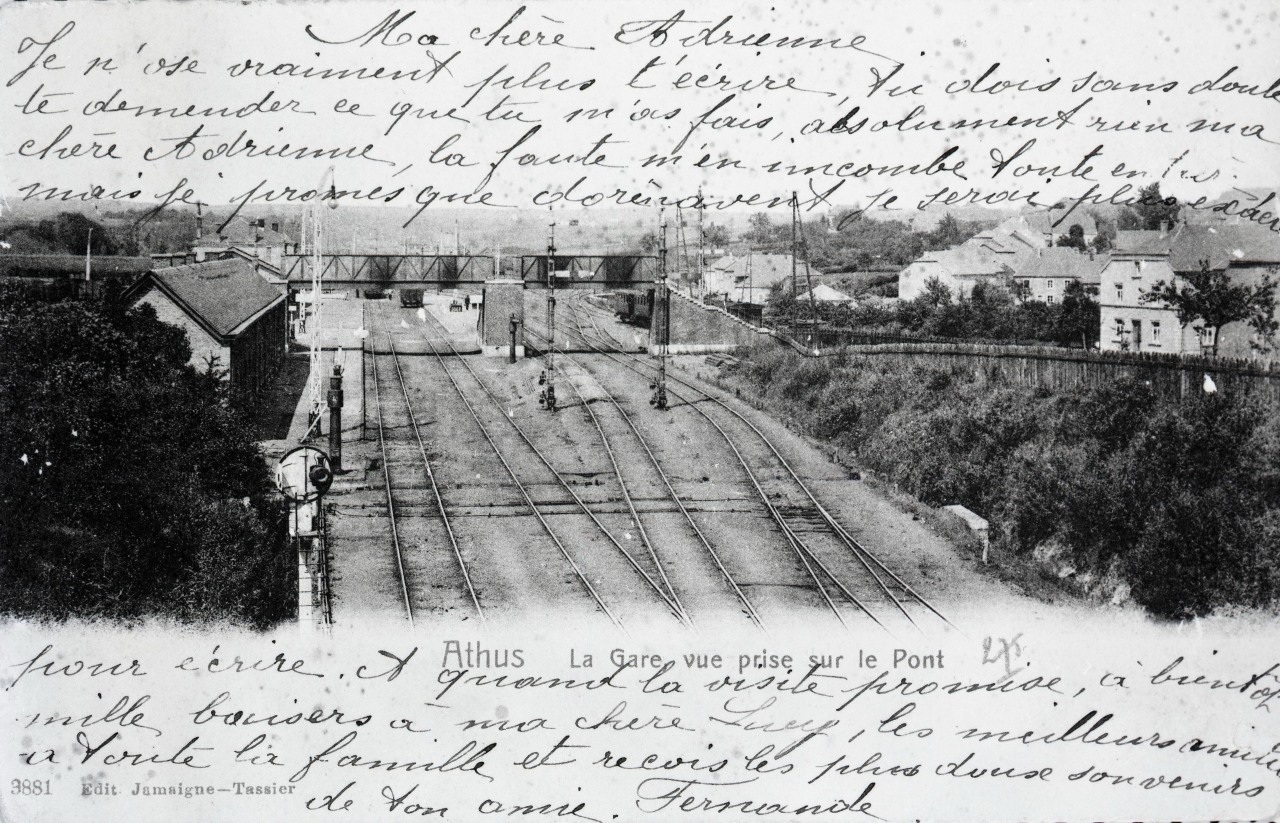 Ma chère Adrienne
Je n'ose vraiment plus t'écrire, tu dois sans doute
te demender ce que tu m'as fais, absolument rien ma
chère Adrienne, la faute m'en incombe toute
mais je promes que dorénavant je serai plus
pour écrire. A quand la visite promise, à bientot
Athus La Gare, vue prise sur le Pont
mille baisers à ma chère Lucy, les meilleurs
a toute la famille et recois les plus doux souvenirs
3881 Edit Jamaigne-Tassier
de ton amie. Fernande